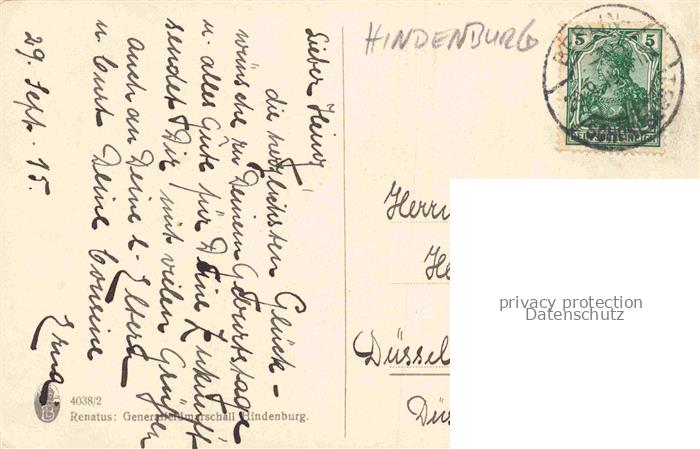 29. Sept. 15.
Lieber Heinz!
die herzlichsten Glück-
wünsche zu Deinem Geburtstage
u. alles Gute für Deine Zukunft
sendet Dir mit vielen Grüßen
auch an Deine l. Eltern
u. Curt Deine Cousine
Erna.
HINDENBURG
5 5
BERLIN
SCHÖNEBERG
Herrn
He
Düssel
Dü
privacy protection
Datenschutz
4038/2
Renatus: Generalfeldmarschall Hindenburg.